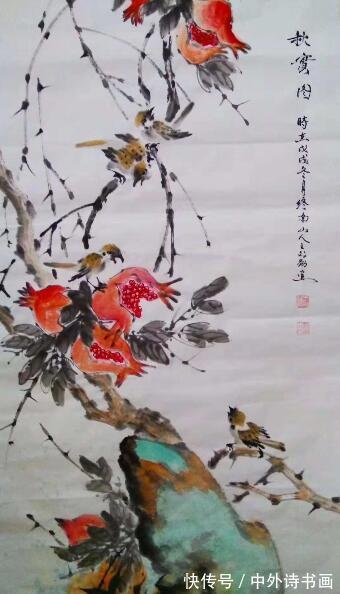 秋實图
時在戊戌冬月终南山人王
快传号 / 中外诗书画